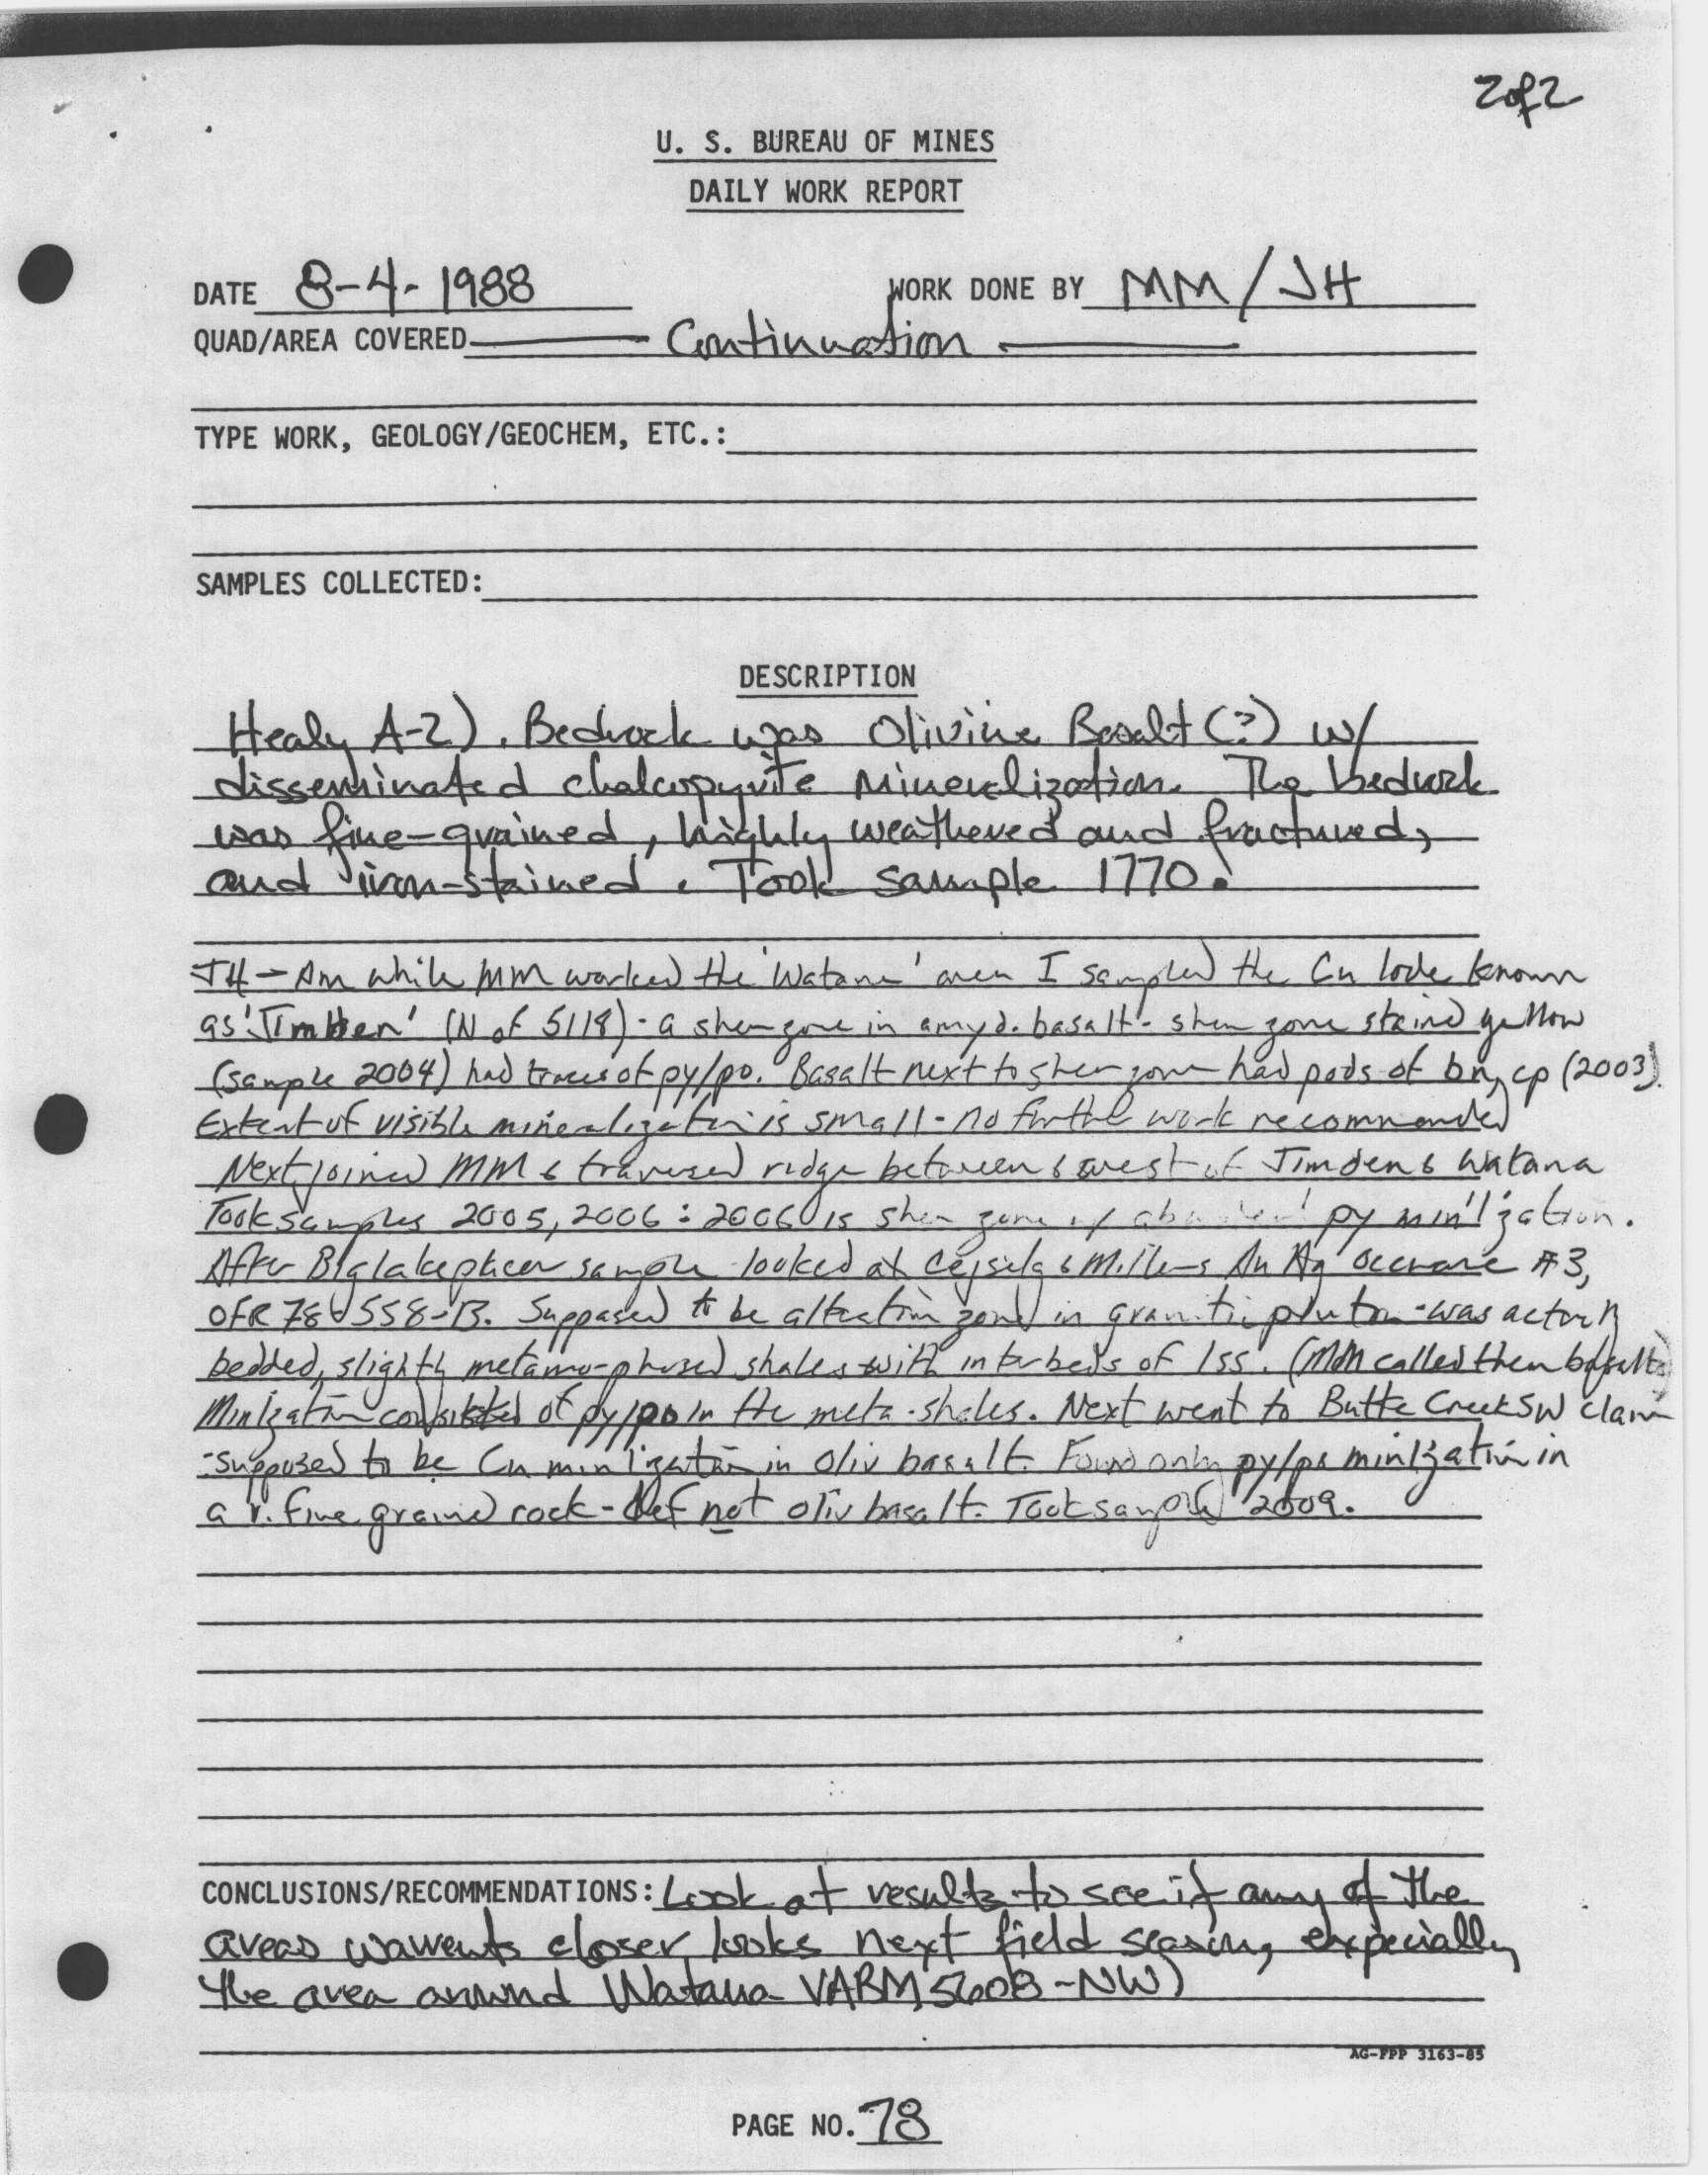 2of2
U. S. BUREAU OF MINES
DAILY WORK REPORT
DATE 8-4-1988 WORK DONE BY MM/JH
QUAD/AREA COVERED Continuation
TYPE WORK, GEOLOGY/GEOCHEM, ETC.:
SAMPLES COLLECTED:
DESCRIPTION
Healy A-2). Bedrock was Olivine Basalt (?) w/
disseminated chalcopyrite mineralization. The bedrock
was fine-grained, highly weathered and fractured,
and iron-stained. Took sample 1770.
JH - Am while MM worked the 'Watana' area I sampled the Cu lode known
as 'Jimden' (N of 5118) - a shear zone in amyd. basalt - shear zone stained yellow
(sample 2004) had traces of py/po. Basalt next to shear zone had pods of bn, cp (2003).
Extent of visible mineralization is small - no further work recommended
Next, joined MM & traversed ridge between & west of Jimden & Watana
Took samples 2005, 2006: 2006 is shear zone w/ py min'lzation.
After Biglake placer sample looked at & Millers Au Ag occurance #3,
OFR 78-558-B. Supposed to be alteration zone in granitic pluton - was actually
bedded, slightly metamorphosed shales with interbeds of lss. (MM called them basalts)
Minlzation consisted of py/po in the meta-shales. Next went to Butte Creek SW claim
- supposed to be Cu minlization in oliv basalt. Found only py/po minlzation in
a v. fine grained rock - def not oliv basalt. Took sample 2009.
CONCLUSIONS/RECOMMENDATIONS: Look at results to see if any of the
areas warrents closer looks next field season, expecially
the area around Watana VABM 5608-NW)
AG-PPP 3163-85
PAGE NO. 78